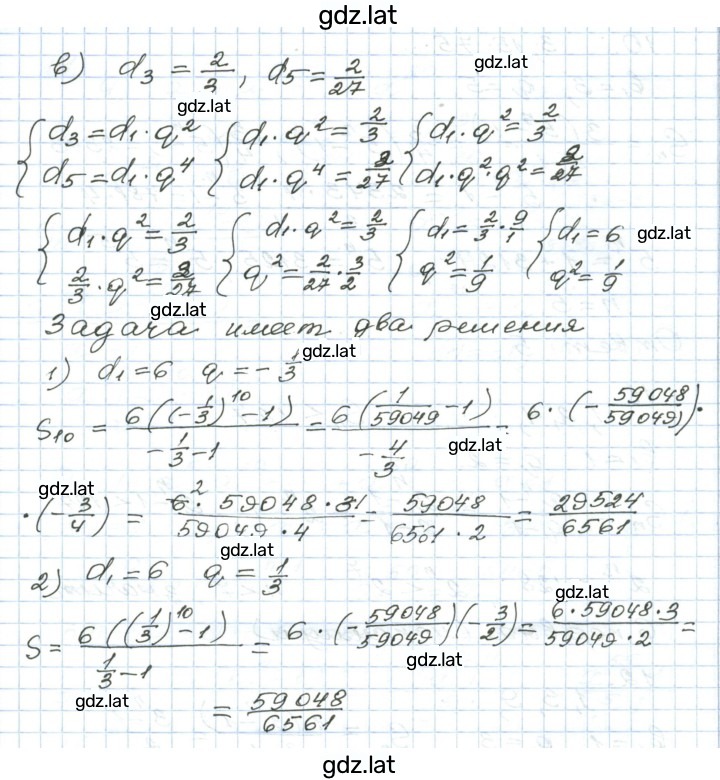 gdz.lat
в) d₃ = 2/3, d₅ = 2/27
gdz.lat
gdz.lat
{ d₃ = d₁ · q² { d₁ · q² = 2/3 { d₁ · q² = 2/3
d₅ = d₁ · q⁴ d₁ · q⁴ = 2/27 d₁ · q² · q² = 2/27
{ d₁ · q² = 2/3 { d₁ · q² = 2/3 { d₁ = 2/3 · 9/1 { d₁ = 6 gdz.lat
2/3 · q² = 2/27 q² = 2/27 · 3/2 q² = 1/9 q² = 1/9
gdz.lat
Задача имеет два решения
gdz.lat
1) d₁ = 6 q = - 1/3
S₁₀ = 6((-1/3)¹⁰ - 1) / (-1/3 - 1) = 6(1/59049 - 1) / (-4/3) = 6 · (-59048/59049) ·
gdz.lat
gdz.lat
· (-3/4) = 6² · 59048 · 31 / 59049 · 4 = 59048 / 6561 · 2 = 29524 / 6561
gdz.lat
2) d₁ = 6 q = 1/3
gdz.lat
S = 6((1/3)¹⁰ - 1) / (1/3 - 1) = 6 · (-59048/59049)(-3/2) = 6 · 59048 · 3 / 59049 · 2 =
gdz.lat
gdz.lat
= 59048 / 6561
gdz.lat